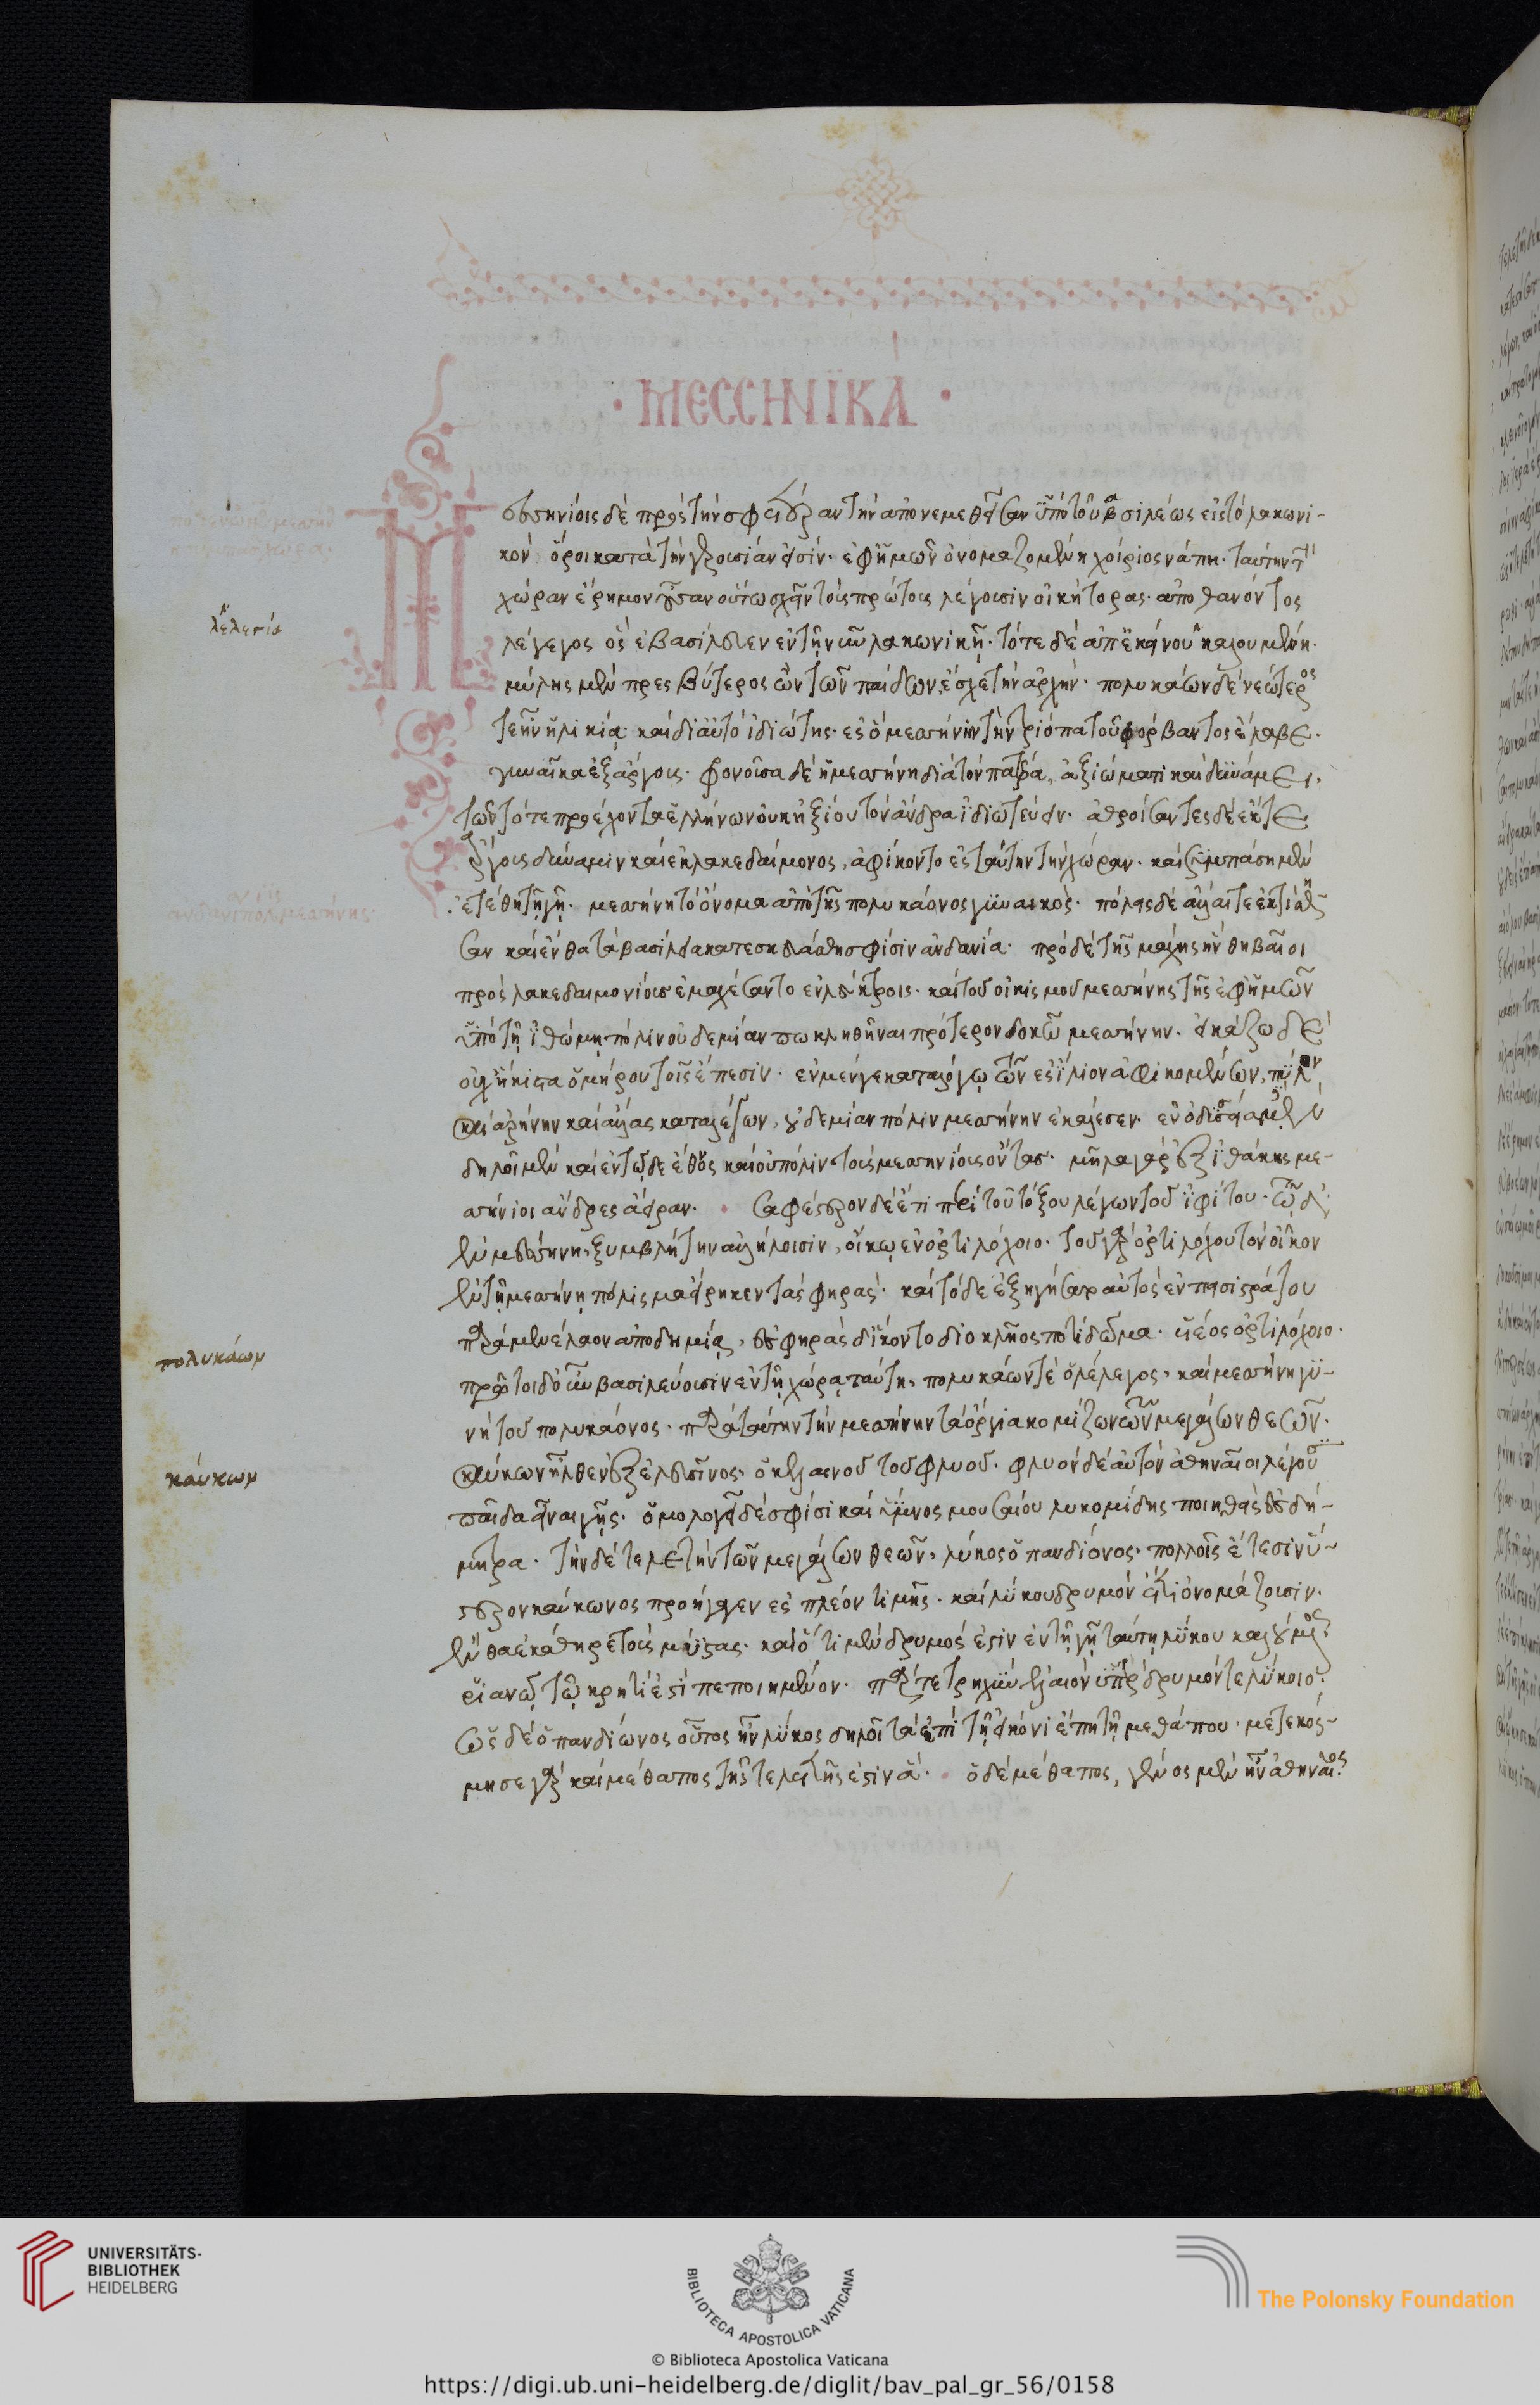 · ΜΕССΗΝΪΚΑ ·
Μεσσηνίοις δὲ πρὸς τὴν σφετέραν τὴν ἀπονεμηθεῖσαν ὑπὸ τοῦ βασιλέως εἰς τὸ λακωνι-
κὸν ὅροι κατὰ τὴν γερουσίαν εἰσίν. ἐφ' ἡμῶν ὀνομαζομένη χοίριος νάπη. ταύτην τὴν
χώραν ἔρημον οὖσαν οὕτω σχεῖν τοὺς πρώτους λέγουσιν οἰκήτορας. ἀποθανόντος
λέλεγος ὃς ἐβασίλευεν ἐν τῇ νῦν λακωνικῇ. τότε δὲ ἀπ' ἐκείνου καλουμένη.
μύλης μὲν πρεσβύτερος ὢν τῶν παίδων, ἔσχε τὴν ἀρχήν. πολυκάων δὲ νεώτερος
τε ἦν ἡλικίᾳ καὶ δι' αὐτὸ ἰδιώτης. ἐς ὃ μεσσήνην τὴν τριόπα τοῦ φόρβαντος ἔλαβε.
γυναῖκα ἐξ ἄργους. φρονοῦσα δὲ ἡ μεσσήνη διὰ τὸν πατέρα, ἀξιώματι καὶ δυνάμει,
τῶν τότε προέχοντα ἑλλήνων οὐκ ἠξίου τὸν ἄνδρα ἰδιωτεύειν. ἀθροίσαντες δὲ ἔκ τε
ἄργους δύναμιν καὶ ἐκ λακεδαίμονος, ἀφίκοντο ἐς ταύτην τὴν χώραν. καὶ συμπάσῃ μὲν
ἐτέθη τῇ γῇ. μεσσήνη τὸ ὄνομα ἀπὸ τῆς πολυκάονος γυναικός. πόλεις δὲ ἄλλαι τε ἐκτίσθη-
σαν καὶ ἔνθα τὰ βασίλεια κατεσκευάσθη σφίσιν ἀνδανία. πρὸ δὲ τῆς μάχης ἣν θηβαῖοι
πρὸς λακεδαιμονίους ἐμαχέσαντο ἐν λεύκτροις. καὶ τοῦ οἰκισμοῦ μεσσήνης τῆς ἐφ' ἡμῶν
ὑπὸ τῇ ἰθώμῃ πόλιν οὐδεμίαν πω κληθῆναι πρότερον δοκῶ μεσσήνην. εἰκάζω δὲ
οὐχ ἥκιστα ὁμήρου τοῖς ἔπεσιν. ἐν μέν γε καταλόγῳ τῶν ἐς ἴλιον ἀφικομένων, πύλον
καὶ ἀρήνην καὶ ἄλλας καταλέγων, οὐδεμίαν πόλιν μεσσήνην ἐκάλεσεν. ἐν ὀδυσσείᾳ μὲν
δηλοῖ μὲν καὶ ἐν τῷδε ἔθνος καὶ οὐ πόλιν τοὺς μεσσηνίους ὄντας. μῆλα γὰρ ἐξ ἰθάκης με-
σσήνιοι ἄνδρες ἄειραν. σαφέστερον δὲ ἔτι περὶ τοῦ τόξου λέγων τοῦ ἰφίτου. τὼ δ'
ἐν μεσσήνῃ, ξυμβλήτην ἀλλήλοισιν, οἴκῳ ἐν ὀρτιλόχοιο. τοῦ γὰρ ὀρτιλόχου τὸν οἶκον
ἐν τῇ μεσσήνῃ πόλισμα εἴρηκεν τὰς φηράς. καὶ τόδε ἐξηγήσαρ αὐτὸς ἐν πεισιστράτου
παρὰ μενέλαον ἀποδημίᾳ, ἐς φηρὰς δ' ἵκοντο διοκλῆος ποτὶ δῶμα. υἱέος ὀρτιλόχοιο.
πρῶτοι δ' οὖν βασιλεύουσιν ἐν τῇ χώρᾳ ταύτῃ, πολυκάων τὲ ὁ λέλεγος, καὶ μεσσήνη γυ-
νὴ τοῦ πολυκάονος. παρὰ ταύτην τὴν μεσσήνην τὰ ὄργια κομίζων τῶν μεγάλων θεῶν.
καύκων ἦλθεν ἐξ ἐλευσῖνος, ὁ κελαινοῦ τοῦ φλυοῦ. φλυὸν δὲ αὐτὸν ἀθηναῖοι λέγουσι
παῖδα εἶναι γῆς. ὁμολογεῖ δέ σφισι καὶ ὕμνος μουσαίου λυκομίδης ποιηθεὶς ἐς δή-
μητρα. τὴν δὲ τελετὴν τῶν μεγάλων θεῶν, λύκος ὁ πανδίονος, πολλοῖς ἔτεσιν ὕ-
στερον καύκωνος προήγαγεν ἐς πλέον τιμῆς. καὶ λύκου δρυμὸν ἔτι ὀνομάζουσιν.
ἔνθα ἐκάθηρε τοὺς μύστας. καὶ ὅτι μὲν δρυμός ἐστιν ἐν τῇ γῇ ταύτῃ λύκου καλούμενος
ῥιανῷ τῷ κρητί ἐστι πεποιημένον. πάρ τε τρηχὺν ἐλαιὸν ὑπὲρ δρυμόν τε λύκοιο.
ὡς δὲ ὁ πανδίωνος οὗτος ἦν λύκος δηλοῖ τὰ ἐπὶ τῇ εἰκόνι ἔπη τῇ μεθάπου. μετεκόσ-
μησε γὰρ καὶ μέθαπος τῆς τελετῆς ἔστιν ἅ. ὁ δὲ μέθαπος, γένος μὲν ἦν ἀθηναῖος
πολυκάων
καύκων
UNIVERSITÄTS-
BIBLIOTHEK
HEIDELBERG
BIBLIOTECA APOSTOLICA VATICANA
The Polonsky Foundation
© Biblioteca Apostolica Vaticana
https://digi.ub.uni-heidelberg.de/diglit/bav_pal_gr_56/0158